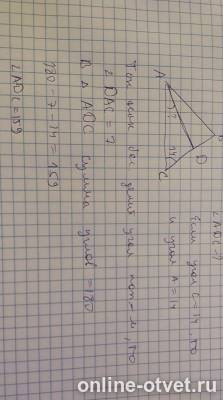 ∠ADC = ?
Если угол C = 14, то
и угол A = 14
A
7
?
D
14
C
Так как бис делит угол поп-м, то
∠DAC = 7
В Δ ADC сумма углов = 180
180 - 7 - 14 = 159
∠ADC = 159
online-otvet.ru